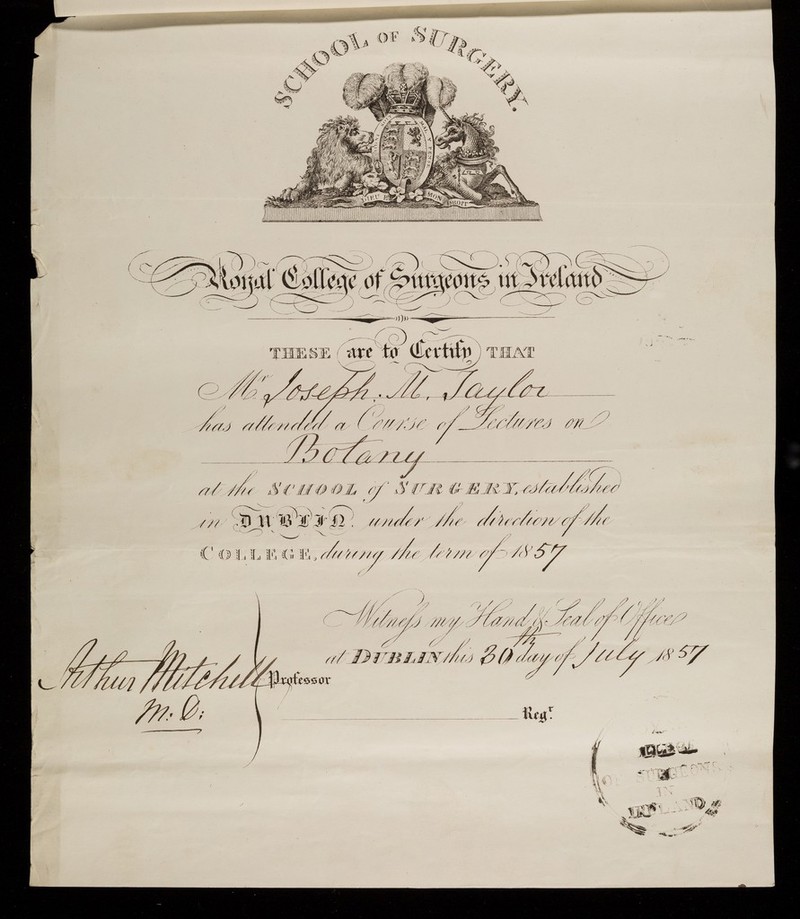 SCHOOL OF SURGERY.
DIEU ET MON DROIT
Royal College of Surgeons in Ireland
THESE are to Certify THAT
Mr Joseph. M. Taylor
has attended a Course of Lectures on
Botany
at the SCHOOL of SURGERY, established
in DUBLIN. under the direction of the
COLLEGE, during the term of 1857
Witness my Hand & Seal of Office
at DUBLIN this 30th day of July 1857
Arthur Mitchell Professor
M. D:
Regr.
OF SURGEONS
IN
IRELAND